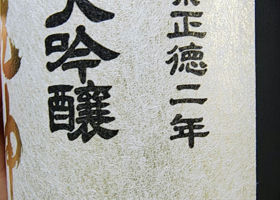 業正徳二年
大吟醸